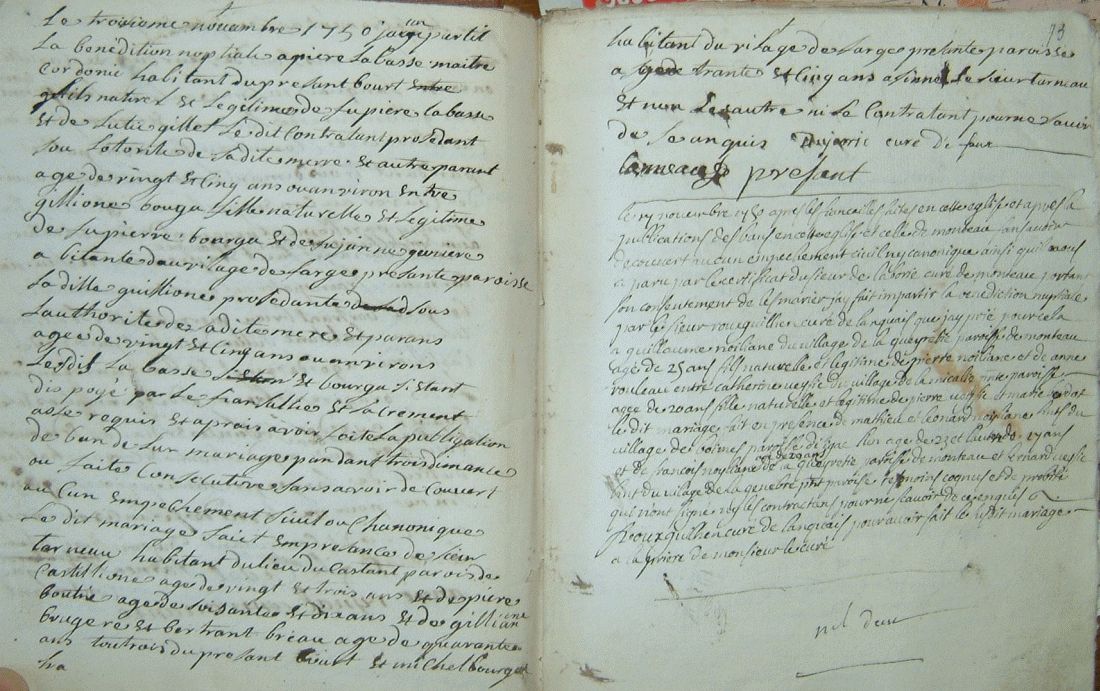 Le troisiame novambre 1750 jay inpartit
La benédition noptiale a piere labasse maitre
Cordonié habitant du presant bourt
fils naturel et Legetime de su piere la basse
Et de gillet Le dit Contratant prosedant
sou Lotorite de sa dite merre et autre parant
age de vingt et Cinq ans ou anviron Entre
gillione bougu fille naturelle et Legitime
de su pierre bourgu et de jeanne
abitante dau vilage de farge presante paroisse
La dille guillione prosedante sous
Lauthorite de sa dite mere et parans
agee de vingt et Cinq ans ou anvirons
Le dit La basse et bourgu s'etant
dis poyé par Le fiansallie et sacrement
asse requis et aprais avoir faite La publigation
de ban de Lur mariage pandant trois dimance
ou faite Consecutive sans avoir de Couvert
au Cun Empechement sivil ou Chanonique
Le dit mariage fait En presance de sieur
tarneau habitant du lieu du Castant parois de
Castillione age de vingt et trois ans et de piere
boutie age de soisante et dix ans et de gillian
brugere et bertrant breau age de quarante
ans toutrois du presant bourt et michel bourgu
ha
73
habitant du vilage de farge presante paroisse
age de trante et Cinq ans a sinné Le sieur tarneau
et non Les autre ni Le Contratant pour ne savoir
de Se anquis curé di faux
tarneau presant
le 17 novembre 1750 apres les fiancailles faites en cette eglise et apres la
publications des bans en cette eglise et celle de monteau sans avoir
decouvert aucun empechement civil ny canonique ainsi qu'il nous
a paru par le certificat du sieur de curé de monteau portant
son consentement de les marier jay fait impartir la benediction nuptiale
par le sieur rouquilhen curé de lanquais que jay prié pour cela
a guillaume noiliane du village de la queyretie paroisse de monteau
age de 25 ans fils naturelle et legitime de pierre noiliane et de anne
rouleau entre catherine veyssie du village de la micalie pnte paroisse
agee de 20 ans fille naturelle et legitime de pierre veyssie et marie
le dit mariage fait en presence de mathieu et leonard noyliane fils du
village de paroisse lun age de 23 et lautre de 17 ans
et de francois noyliane de la queyretie paroisse de monteau et bernard veyssie
du village de la genebre pnt paroise temoins cognus et de probité
qui nont signé ny les contractans pour ne scavoir de ce enquis
Rouxquilhen curé de lanquais pour avoir fait le susdit mariage
a la prière de monsieur le curé